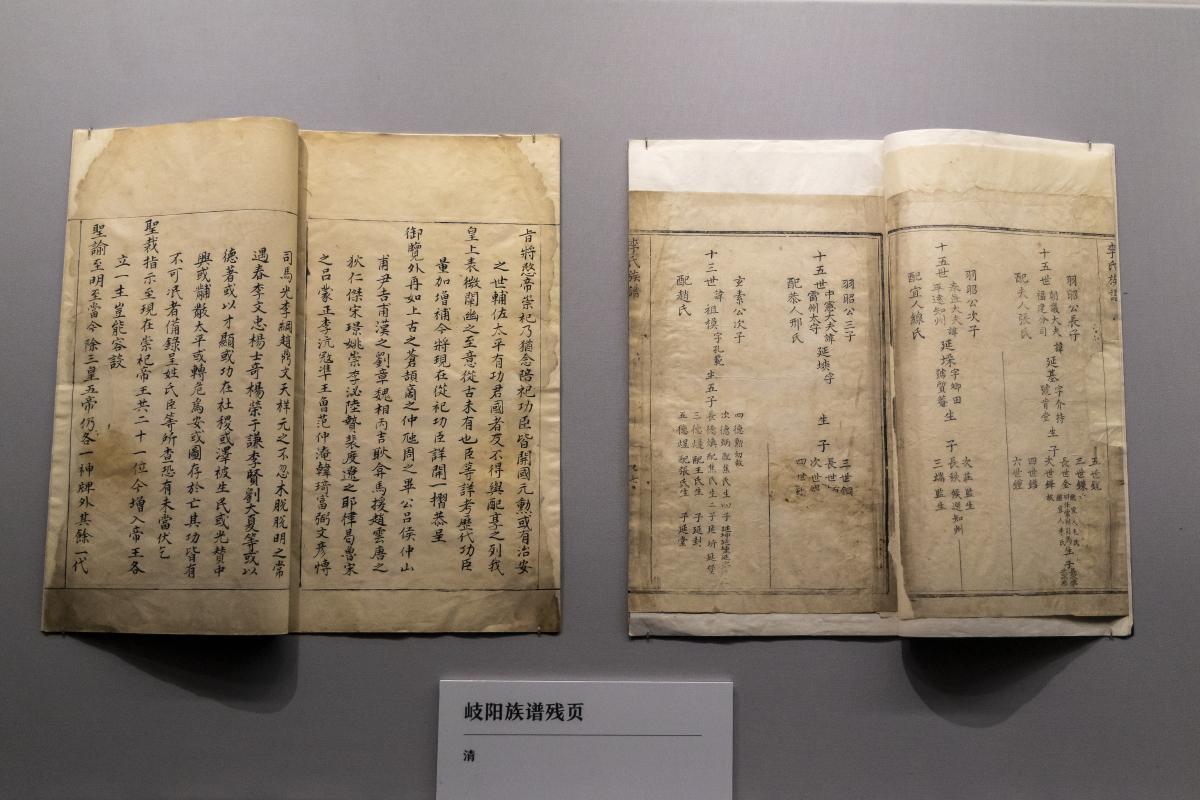 旨將愍帝崇祀乃猶念陪祀功臣皆開國元勳或有治安
之世輔佐太平有功君國者及不得與配享之列我
皇上表微闡幽之至意從古未有也臣等詳考歷代功臣
量加增補今將現在從祀功臣詳開一摺恭呈
御覽外再如上古之蒼頡商之仲虺周之畢公呂侯仲山
甫尹吉甫漢之劉章魏相丙吉耿弇馬援趙雲唐之
狄仁傑宋璟姚崇李泌陸贄裴度遼之耶律曷魯宋
之呂蒙正李沆寇準王曾范仲淹韓琦富弼文彥博
司馬光李綱趙鼎文天祥元之不忽木脫脫明之常
遇春李文忠楊士奇楊榮于謙李賢劉大夏等或以
德著或以才顯或功在社稷或澤被生民或光贊中
興或黼黻太平或轉危爲安或圖存於亡其功皆有
不可泯者備錄呈姓氏臣等所查恐有未當伏乞
聖裁指示至現在崇祀帝王共二十一位今增入帝王各
立一主豈能容設
聖諭至明至當今除三皇五帝仍各一神牌外其餘一代
李氏族譜
羽昭公長子
十五世
朝議大夫諱
福建分司
延基字介持
號肯堂
生
子
配夫人張氏
羽昭公次子
十五世
奉直大夫諱
平遠知州
延採字卿田
號質菴
生
子
次莊監生
長秋候選知州
三瑞監生
配宜人線氏
李氏族譜
羽昭公三子
十五世
中憲大夫諱
雷州太守
延埮字
生
子
配恭人邢氏
玄素公次子
十三世
諱
祖模
字孔範
生五子
四德勳幼歿
配趙氏
五德煜配張氏生
子延堂
岐阳族谱残页
清